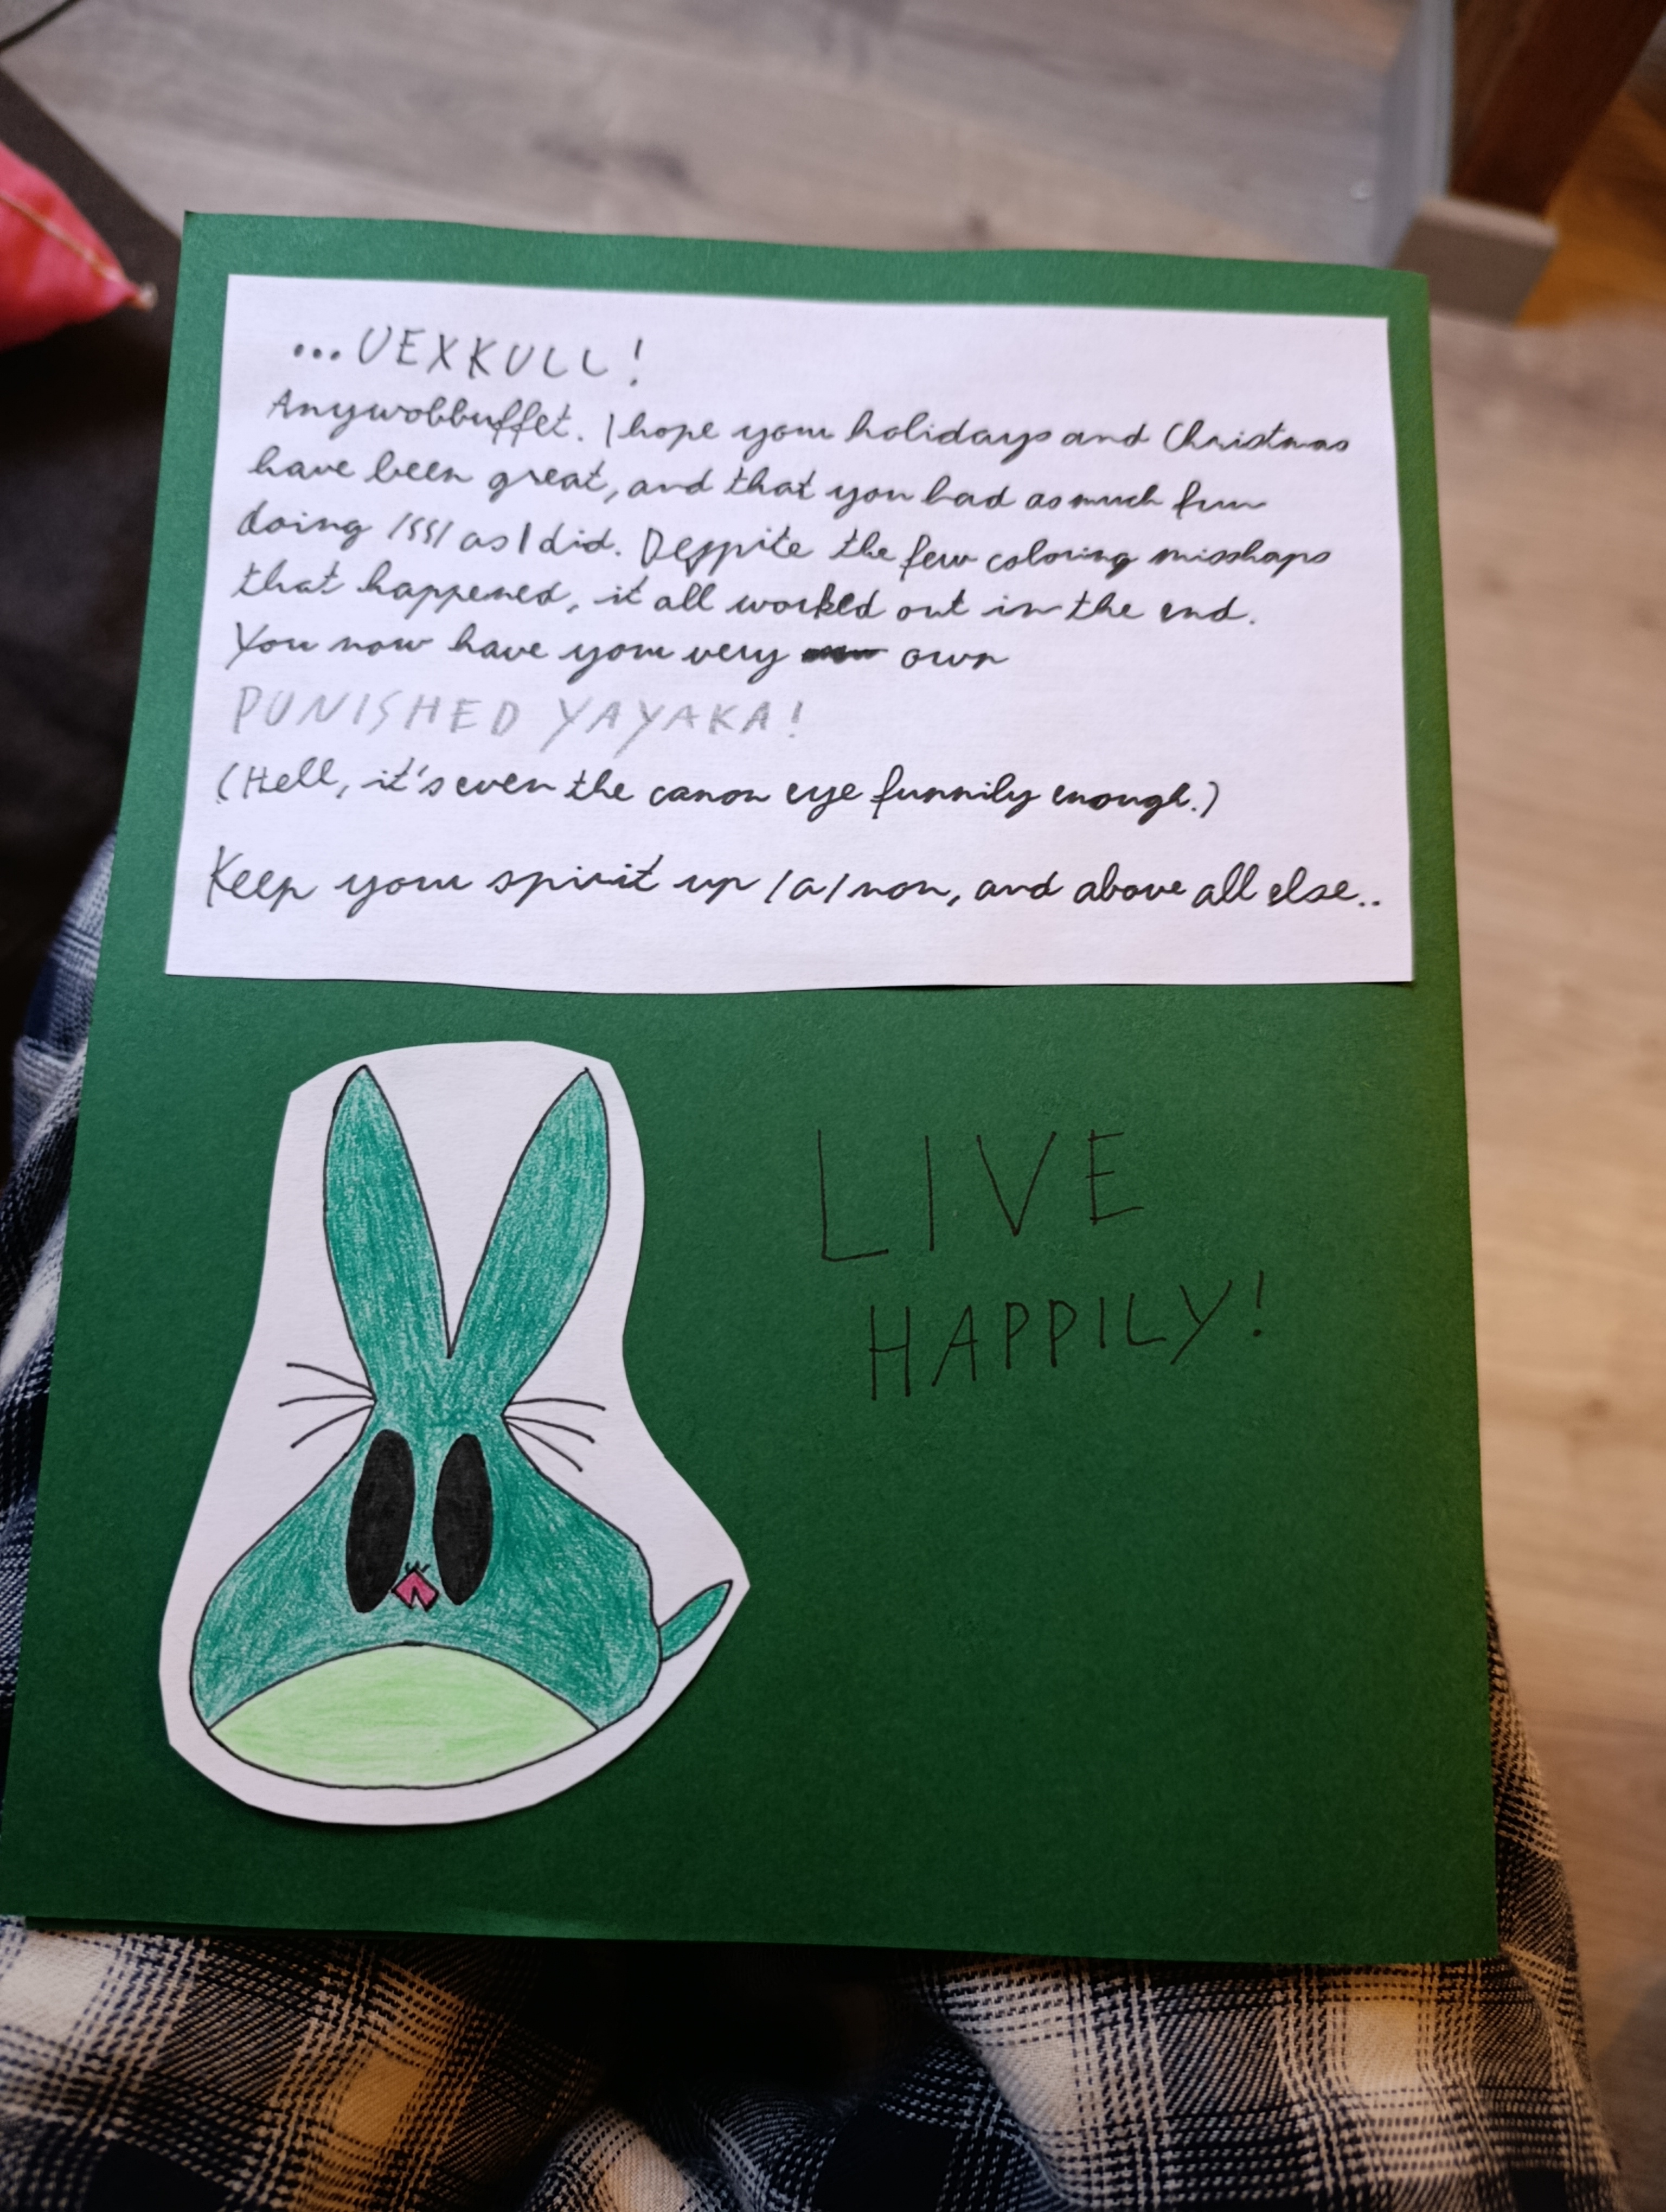 ...UEXKULL!
Anywobbuffet. I hope your holidays and Christmas
have been great, and that you had as much fun
doing /SS/ as I did. Despite the few coloring misshaps
that happened, it all worked out in the end.
You now have your very own
PUNISHED YAYAKA!
(Hell, it's even the canon eye funnily enough.)
Keep your spirit up /a/non, and above all else..
LIVE
HAPPILY!